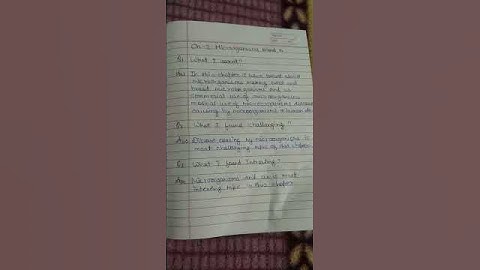 Ch-2 Microorganisms friend &
Q1 What I learnt?
Ans In this chapter I have learnt about
microorganisms making curd and
bread microorganisms and us
commercial use of microorganisms
medical use of microorganisms diseases
causing by microorganisms in human
Q2 What I found challenging?
Ans Diseases causing by microorganisms is
most challenging topic of this chapter
Q3 What I found Interesting?
Ans Microorganisms and us is most
Interesting topic in this chapter